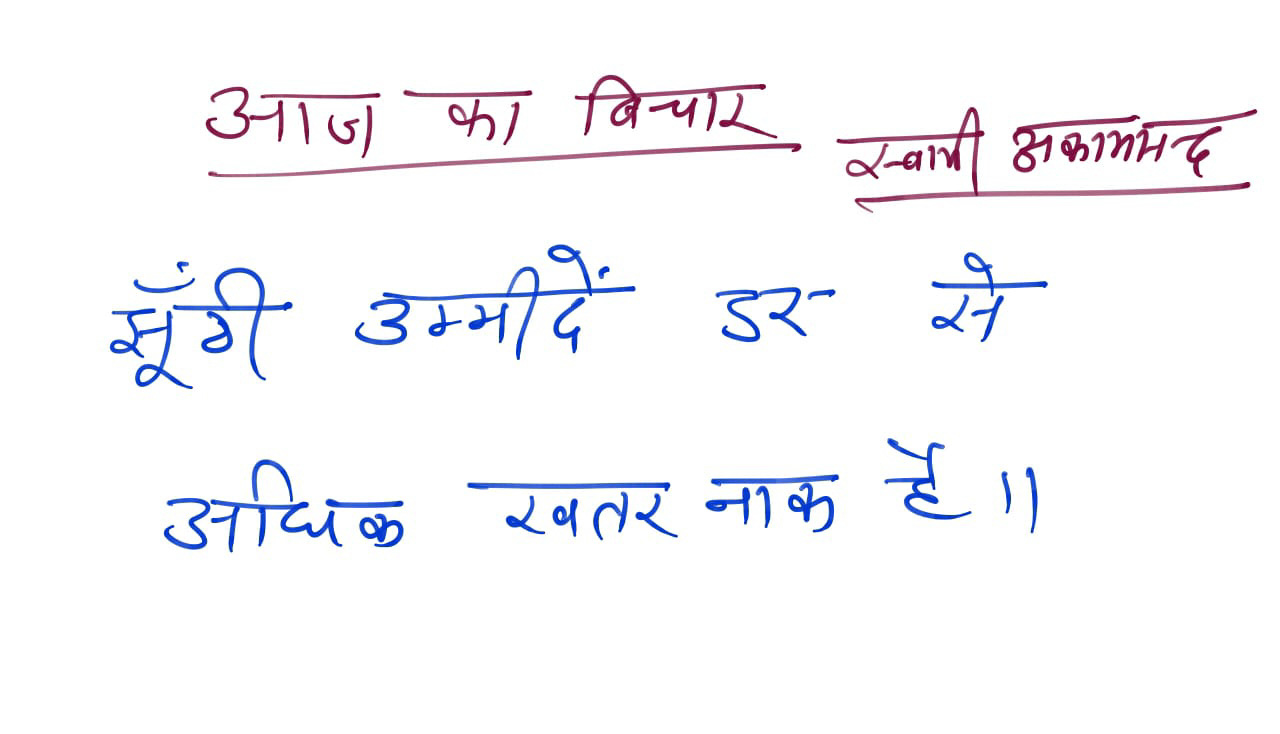 आज का विचार
स्वामी अकामानन्द
झूँठी उम्मीदें डर से
अधिक खतर नाक है ।।